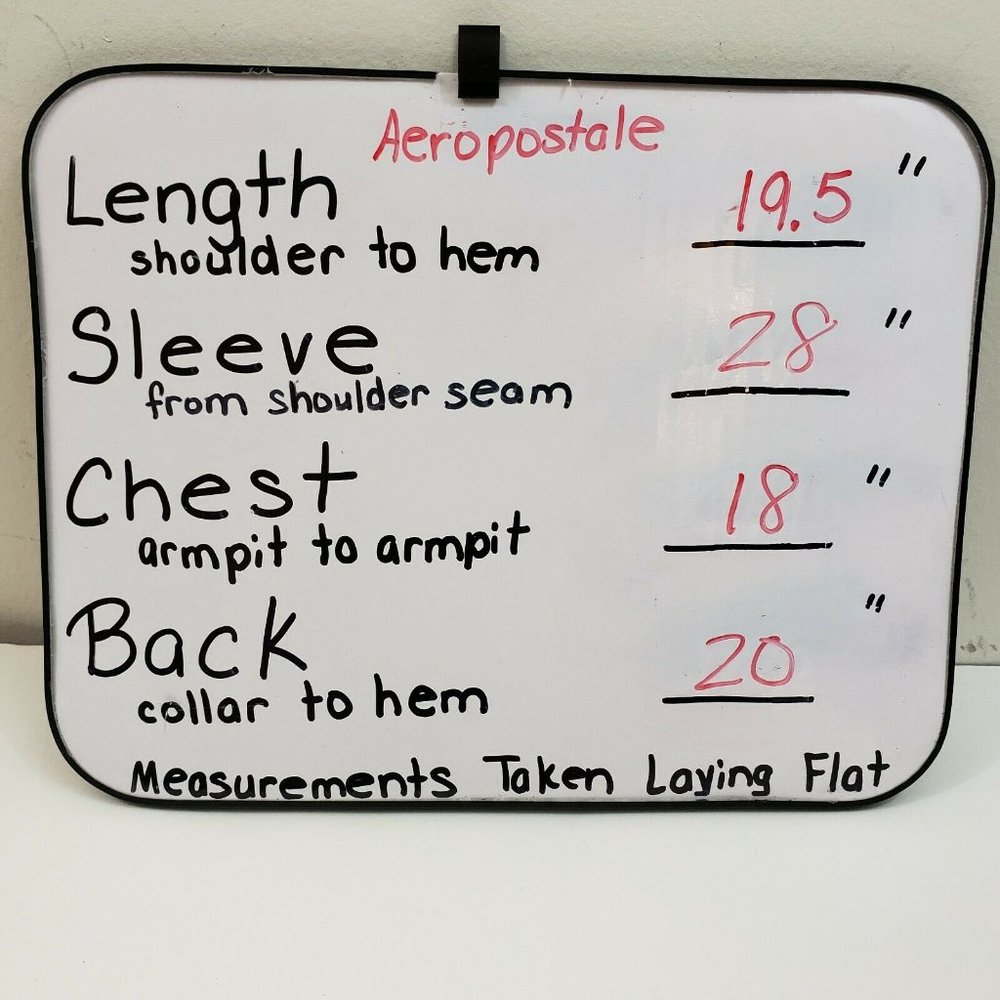 Aeropostale
Length 19.5"
shoulder to hem
Sleeve 28"
from shoulder seam
Chest 18"
armpit to armpit
Back 20"
collar to hem
Measurements Taken Laying Flat